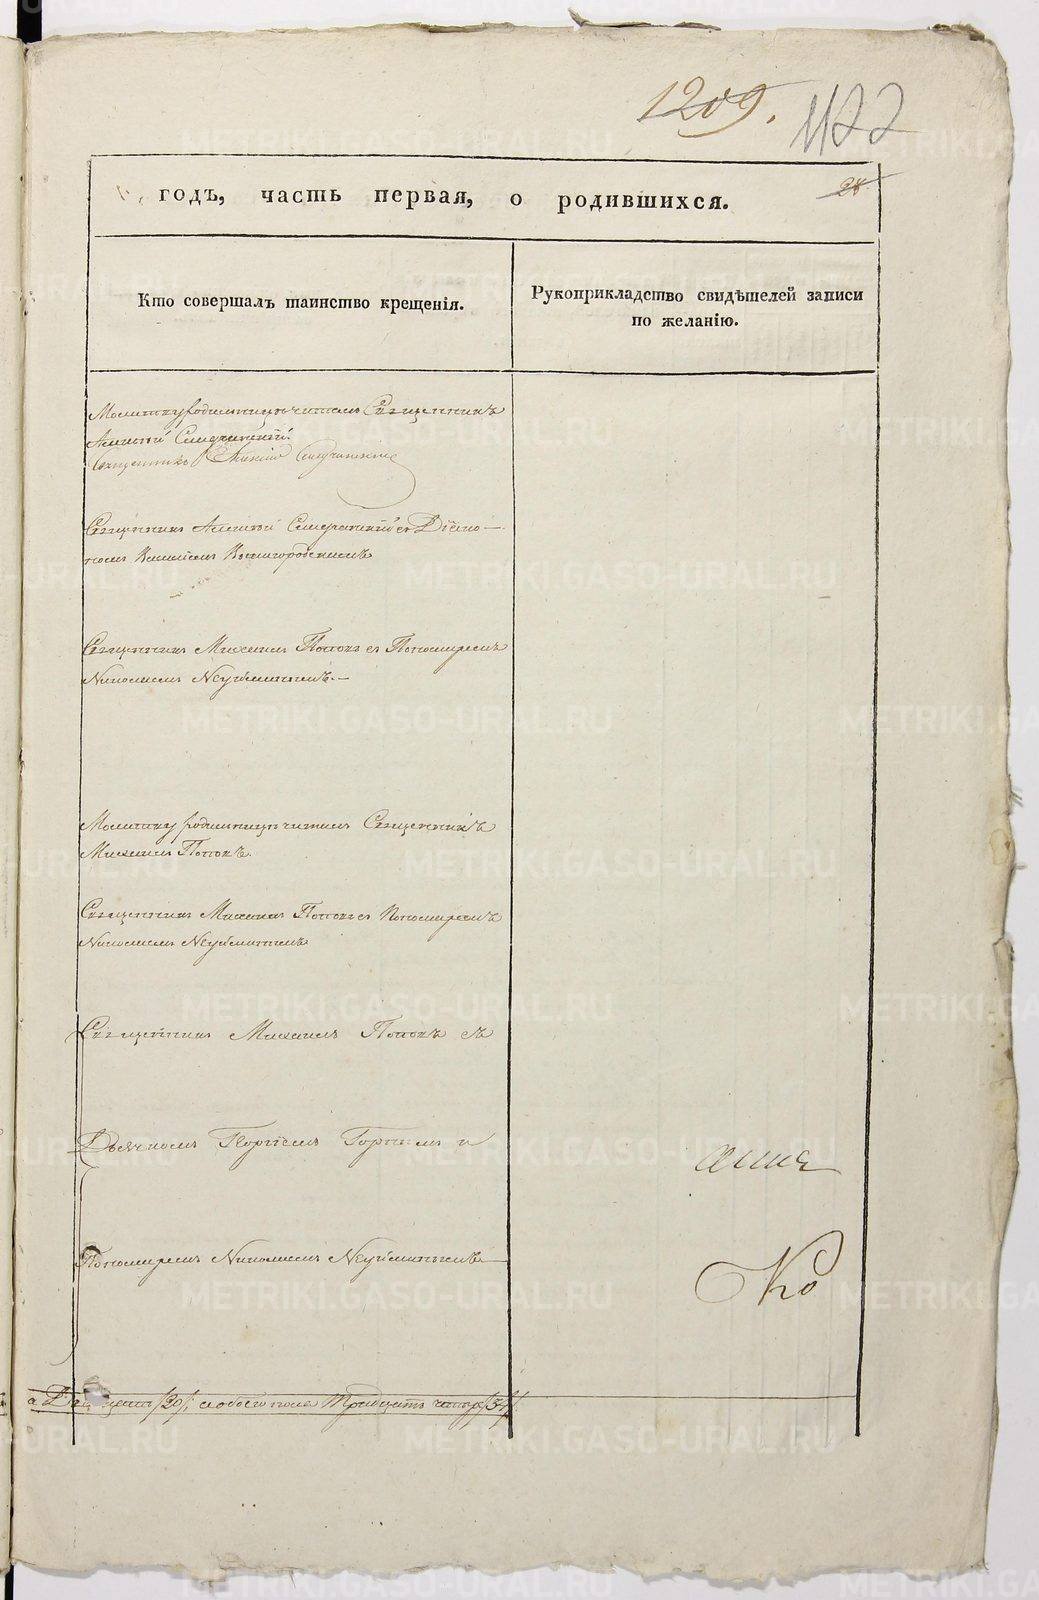 1209.
1122
годъ, часть первая, о родившихся.
28
Кто совершалъ таинство крещенія.
Рукоприкладство свидѣтелей записи
по желанію.
Молитву родильницѣ читалъ Священникъ
Алексѣй
Священникъ Алексій
Священникъ Алексѣй съ
Священникъ Михаилъ Поповъ съ Пономаремъ
Николаемъ Неуйминымъ.
Молитву родильницѣ читалъ Священникъ
Михаилъ Поповъ.
Священникъ Михаилъ Поповъ съ Пономаремъ
Николаемъ Неуйминымъ
Священникъ Михаилъ Поповъ съ
Дьячкомъ Георгіемъ и
Пономаремъ Николаемъ Неуйминымъ
Ко
/20/; а обоего пола тридцать четыре /34/
METRIKI.GASO-URAL.RU